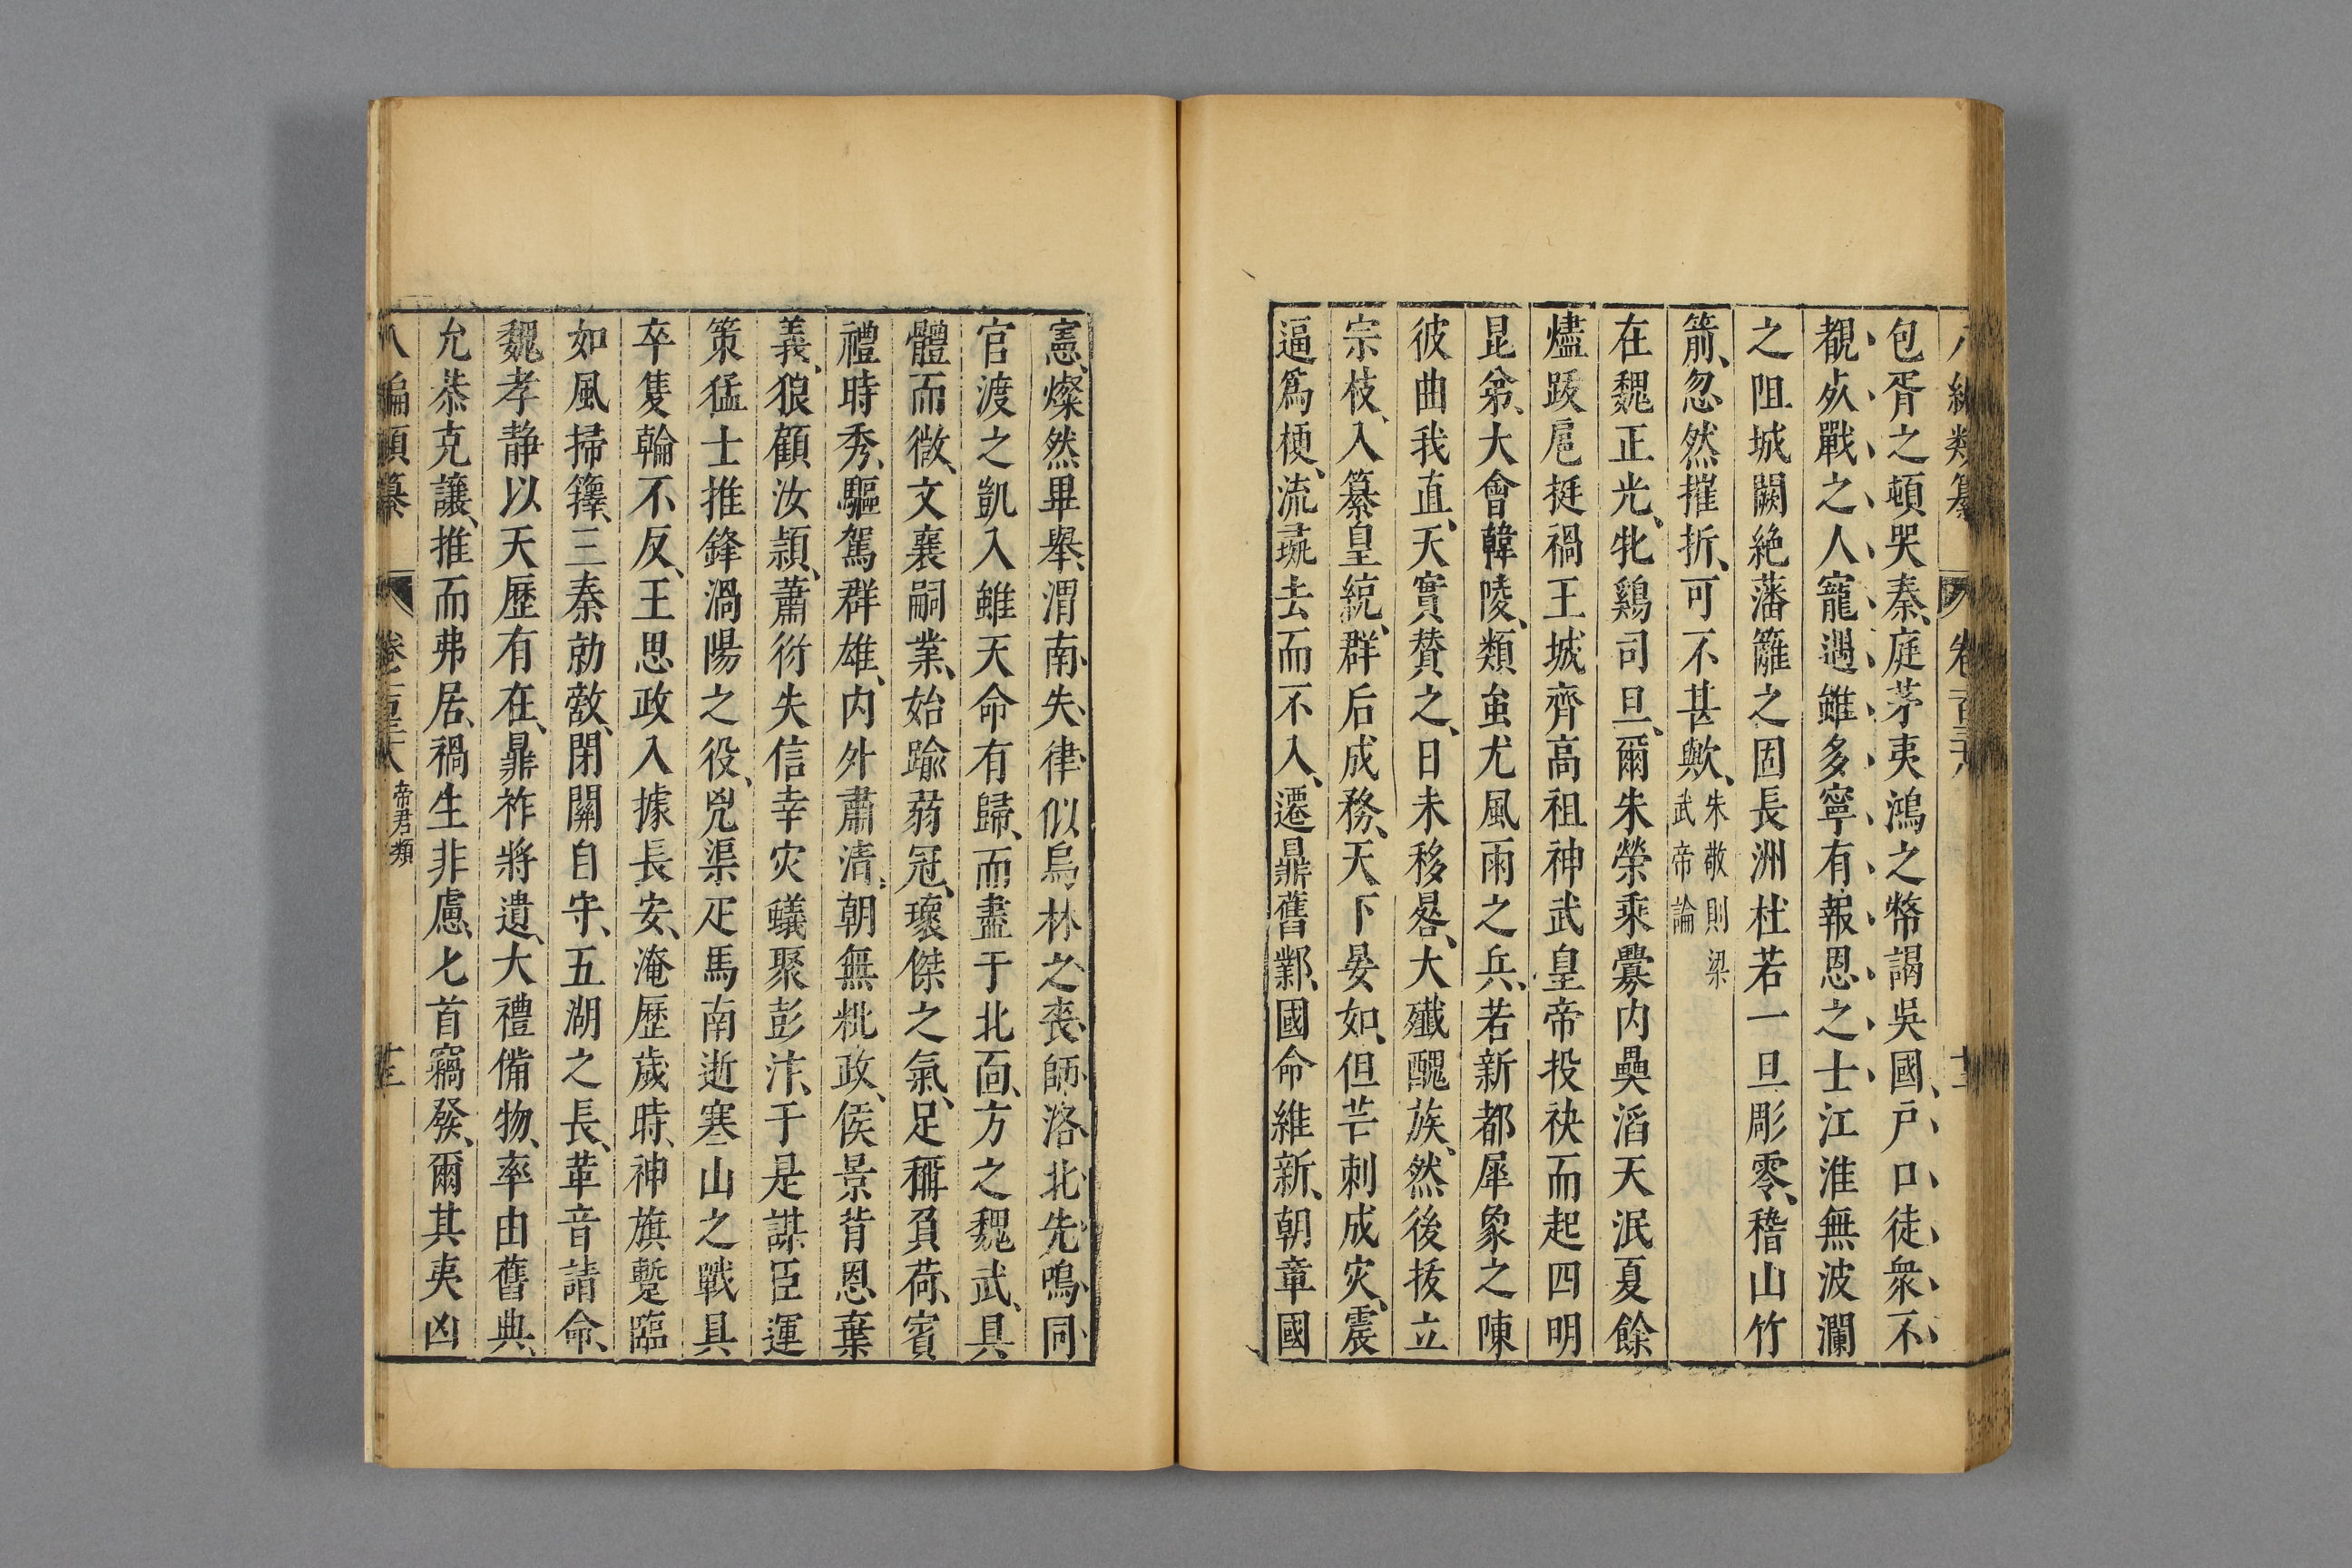 包胥之頓哭秦庭茅夷鴻之幣謁吳國戶口徒衆不
覩死戰之人寵遇雖多寧有報恩之士江淮無波瀾
之阻城闕絶藩籬之固長洲杜若一旦彫零稽山竹
箭忽然摧折可不甚歟朱敬則梁武帝論
在魏正光牝鷄司旦爾朱榮乘釁内奰滔天泯夏餘
燼跋扈挺禍王城齊高祖神武皇帝投袂而起四明
昆弟大會韓陵類蚩尤風雨之兵若新都犀象之陳
彼曲我直天實贊之日未移晷大殲醜族然後拔立
宗枝入纂皇統群后成務天下晏如但芒刺成灾震
逼爲梗流彘去而不入遷鼎舊鄴國命維新朝章國
憲燦然畢舉渭南失律似烏林之喪師洛北先鳴同
官渡之凱入雖天命有歸而盡于北面方之魏武具
體而微文襄嗣業始踰弱冠瓌傑之氣足稱負荷賓
禮時秀驅駕群雄内外肅清朝無秕政侯景背恩棄
義狼顧汝潁蕭衍失信幸灾蟻聚彭汴于是謀臣運
策猛士推鋒渦陽之役兇渠疋馬南逝寒山之戰具
卒隻輪不反王思政入據長安淹歷歲時神旗蹔臨
如風掃籜三秦勍敵閉關自守五湖之長革音請命
魏孝静以天歷有在鼎祚將遺大禮備物率由舊典
允恭克讓推而弗居禍生非慮匕首竊發爾其夷凶
八編類纂 卷之一百三六 帝君類 十三